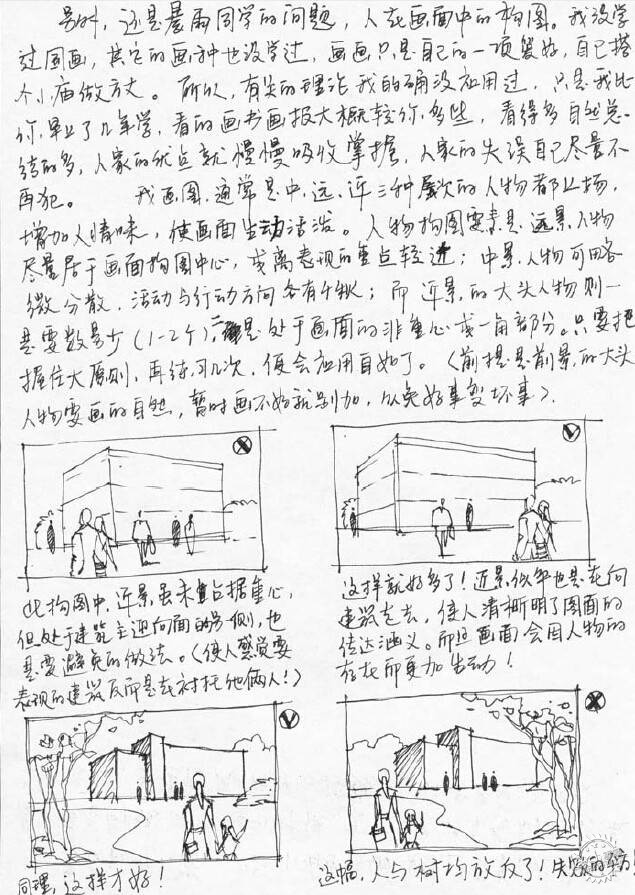 另外，还是暑雨同学的问题，人在画面中的构图。我没学
过国画，其它的画种也没学过，画画只是自己的一项爱好，自己搭
个小庙做方丈。所以，有关的理论我的确没应用过，只是我比
你早上了几年学，看的画书画报大概较你多些，看得多自然总
结的多，人家的优点就慢慢吸收掌握，人家的失误自己尽量不
再犯。 我画图，通常是中、远、近三种层次的人物都上场，
增加人情味，使画面生动活泼。人物构图要素是：远景人物
尽量居于画面构图中心，或离表现的重点较近；中景人物可略
微分散，活动与行动方向各有千秋；而近景的大头人物则一
是要数量少（1-2个），二是处于画面的非重心或一角部分。只要把
握住大原则，再练习几次，便会应用自如了。（前提是前景的大头
人物要画的自然，暂时画不好就别加，以免好事变坏事）.
此构图中，近景虽未占据重心，
但处于建筑主迎向面的另一侧，也
是要避免的做法。（使人感觉要
表现的建筑反而是在衬托他俩人！）
这样就好多了！近景似乎也是在向
建筑走去，使人清晰明了图面的
传达涵义。而且画面会因人物的
存在而更加生动！
同理，这样才好！
这幅，人与树均放反了！失败的